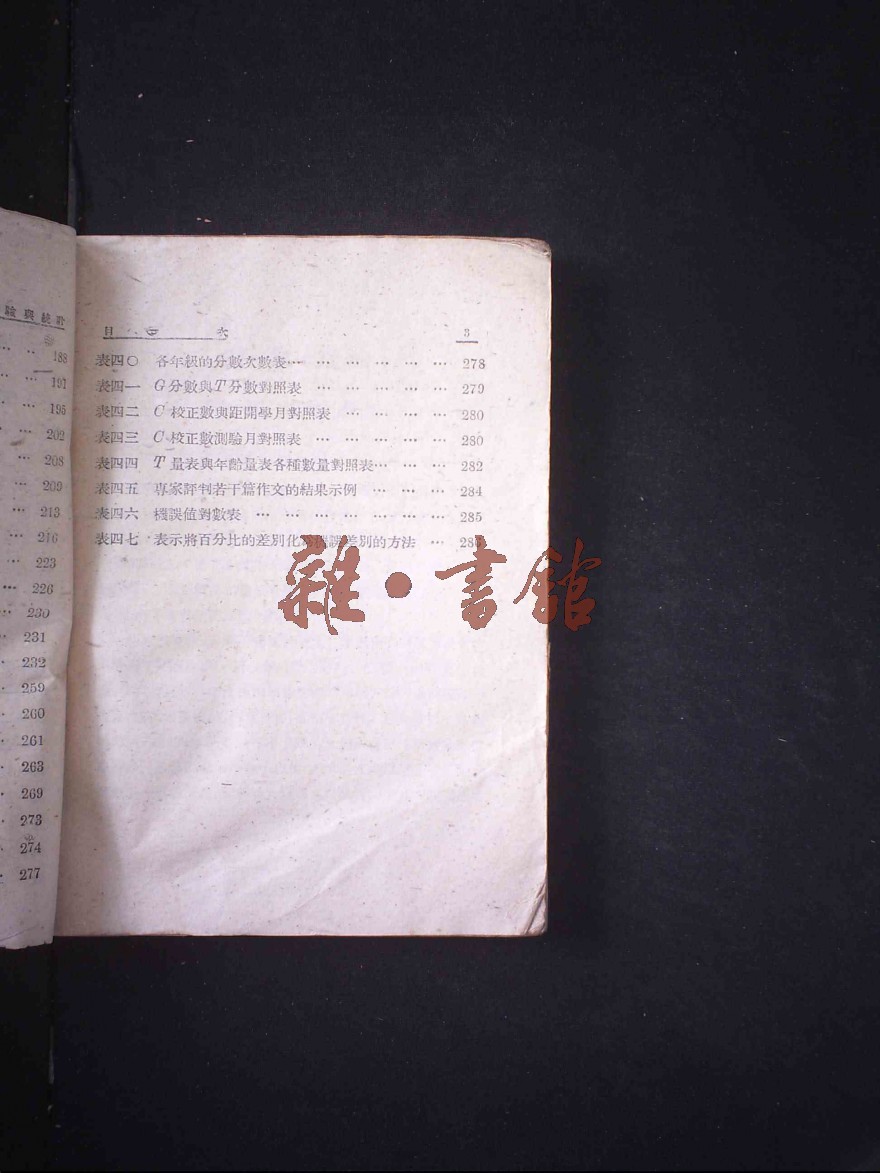 驗與統計
188
191
195
202
208
209
213
216
223
226
230
231
232
259
260
261
263
269
273
274
277
目 次 3
表四〇 各年級的分數次數表… … … … … … 278
表四一 G分數與T分數對照表 … … … … … 279
表四二 C校正數與距開學月對照表 … … … … 280
表四三 C校正數測驗月對照表 … … … … … 280
表四四 T量表與年齡量表各種數量對照表… … … 282
表四五 專家評判若干篇作文的結果示例 … … … 284
表四六 機誤值對數表 … … … … … … … 285
表四七 表示將百分比的差別化為機誤差別的方法 …
雜·書館